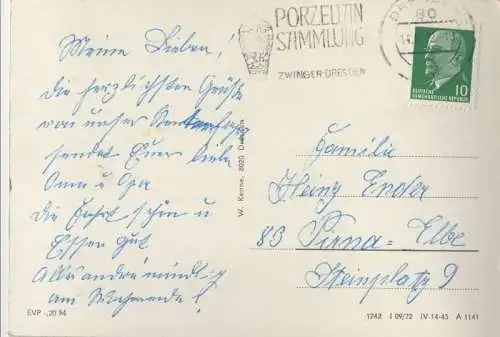 Meine Lieben!
die herzlichsten Grüße
von unser
sendet Euer
Oma u Opa
die Fahrt schön u
Essen gut
Alles andre mündlich
am Wochenende!
EVP -,20 M
W. Kenne, 8020 Dresden
PORZELLAN
SAMMLUNG
ZWINGER-DRESDEN
80
DEUTSCHE
DEMOKRATISCHE REPUBLIK
10
Familie
Heinz Ender
83 Pirna-Elbe
Steinplatz 9
1243 J 09/72 IV-14-45 A 1141